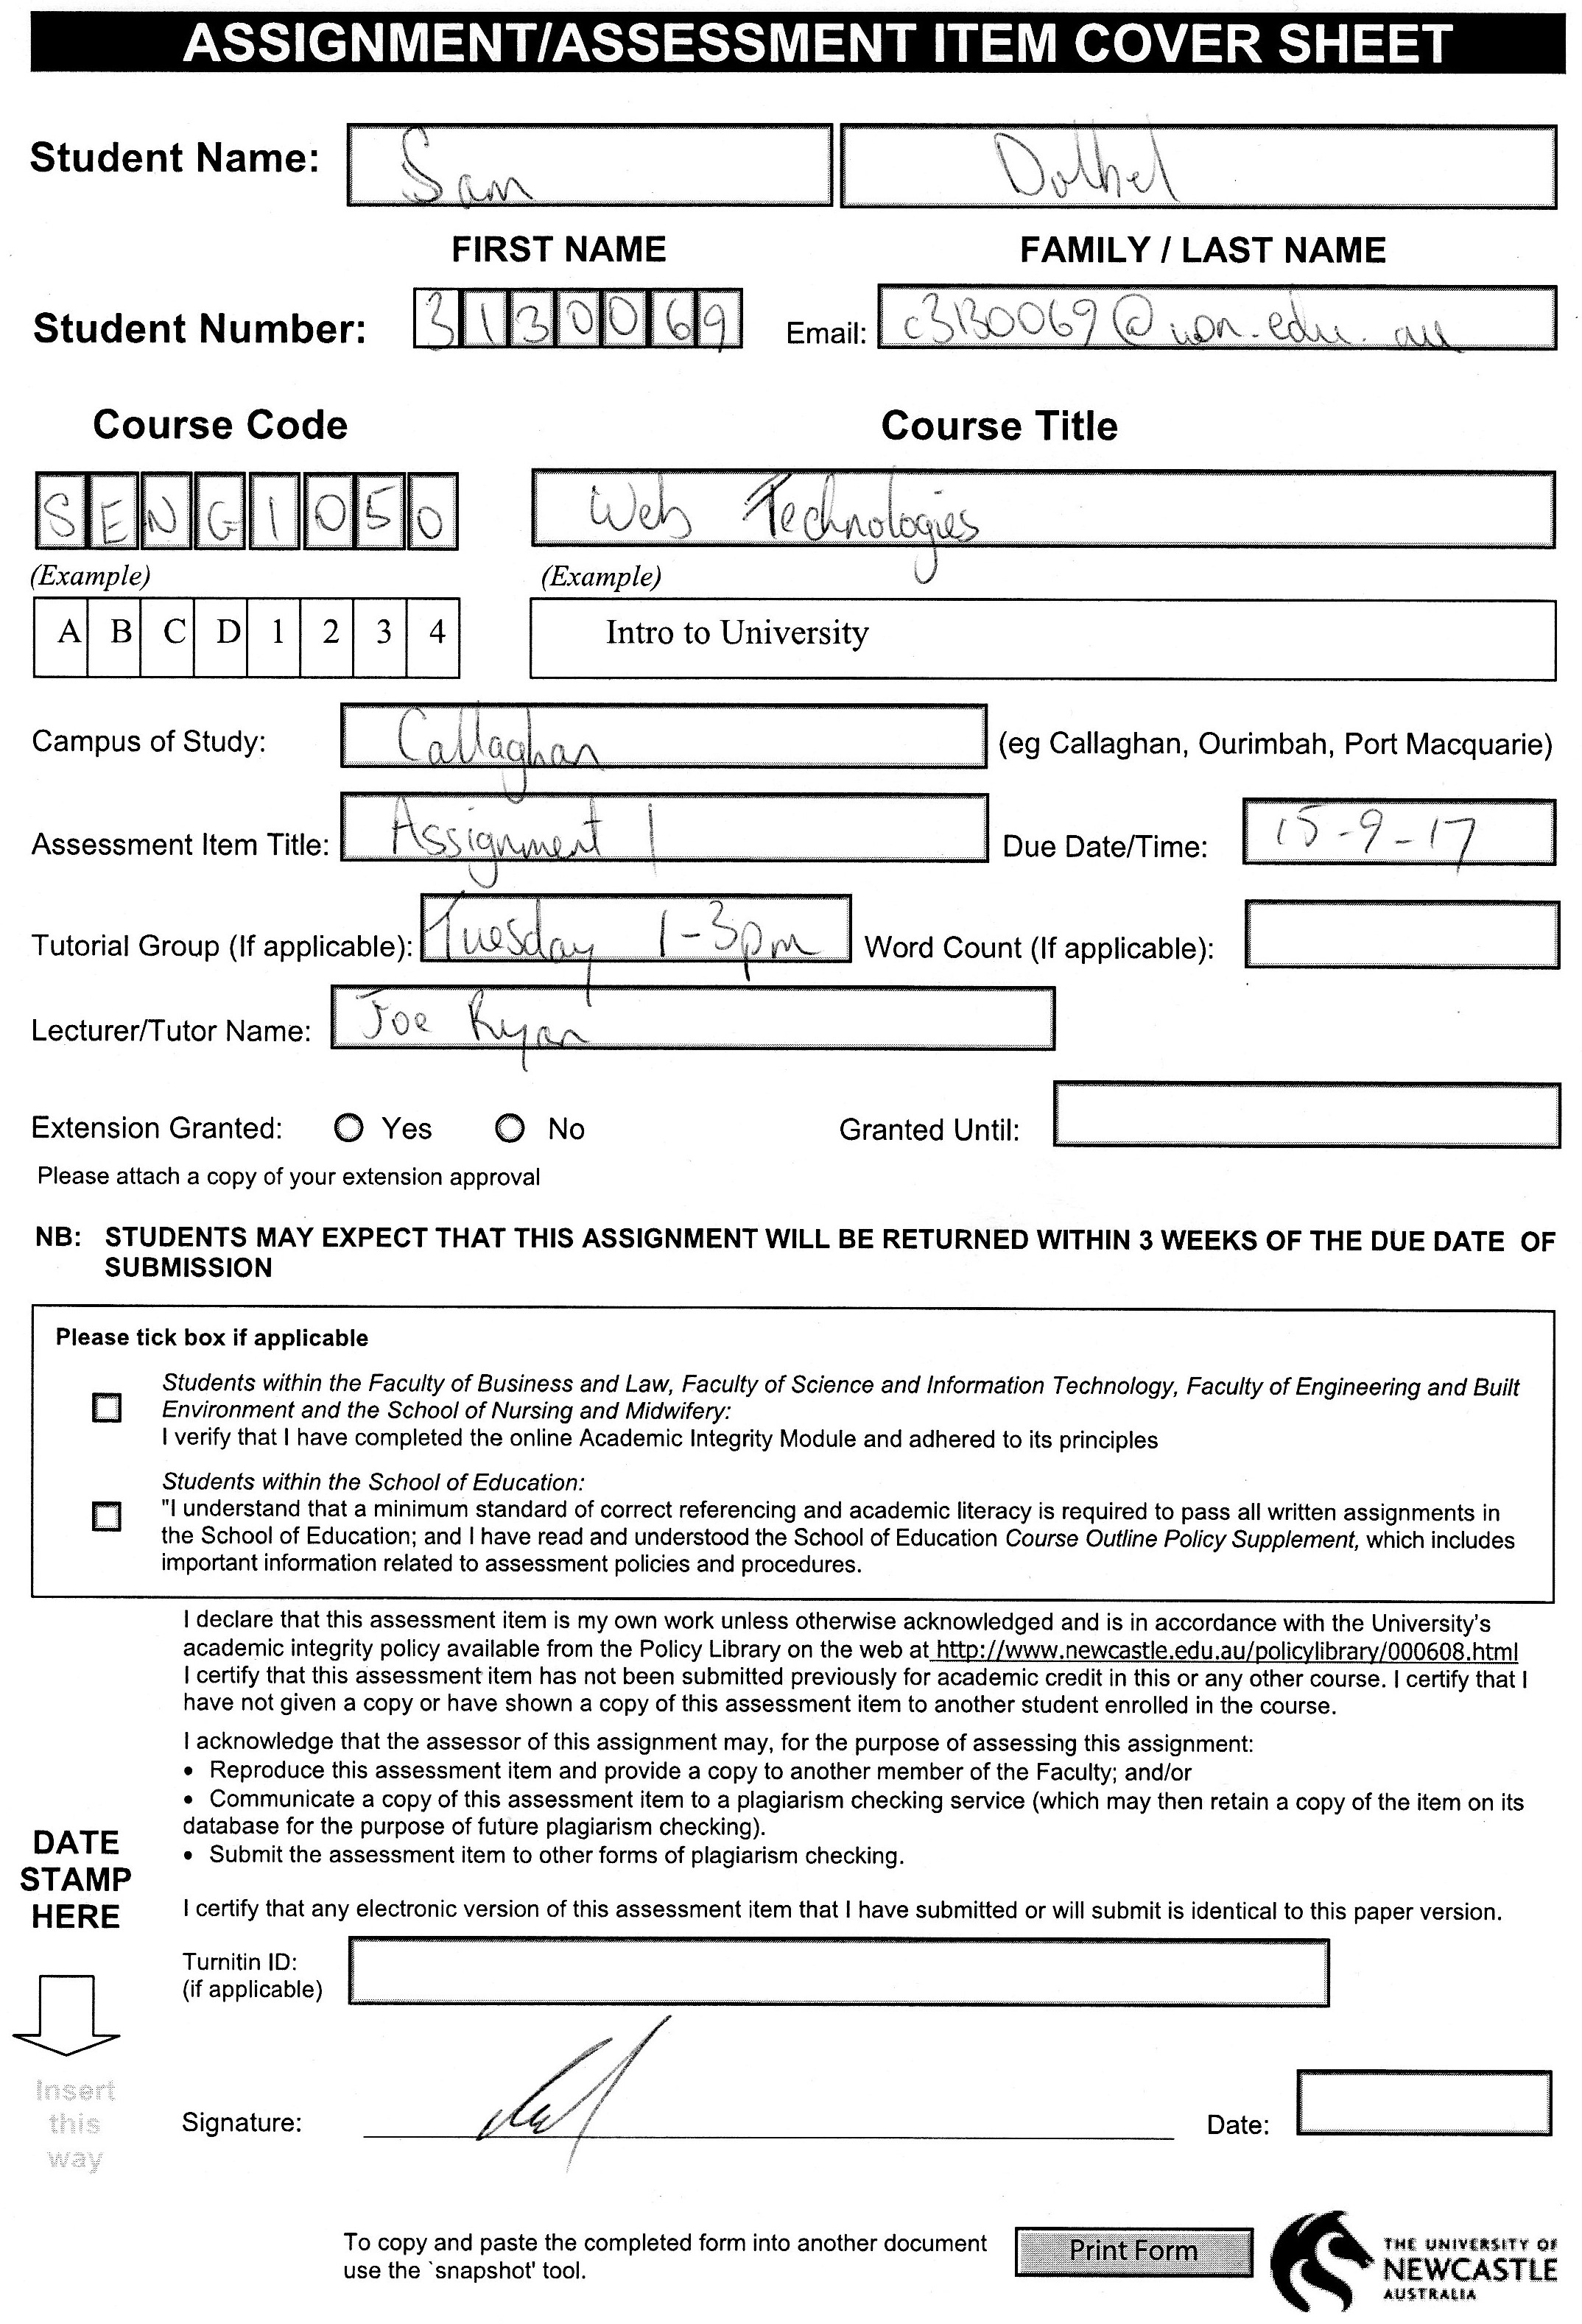 ASSIGNMENT/ASSESSMENT ITEM COVER SHEET
Student Name: Sam Dolbel
FIRST NAME FAMILY / LAST NAME
Student Number: 3130069 Email: c3130069@uon.edu.au
Course Code Course Title
SENG1050 Web Technologies
(Example) (Example)
A B C D 1 2 3 4 Intro to University
Campus of Study: Callaghan (eg Callaghan, Ourimbah, Port Macquarie)
Assessment Item Title: Assignment 1 Due Date/Time: 15-9-17
Tutorial Group (If applicable): Tuesday 1-3pm Word Count (If applicable):
Lecturer/Tutor Name: Joe Ryan
Extension Granted: Yes No Granted Until:
Please attach a copy of your extension approval
NB: STUDENTS MAY EXPECT THAT THIS ASSIGNMENT WILL BE RETURNED WITHIN 3 WEEKS OF THE DUE DATE OF
SUBMISSION
Please tick box if applicable
Students within the Faculty of Business and Law, Faculty of Science and Information Technology, Faculty of Engineering and Built
Environment and the School of Nursing and Midwifery:
I verify that I have completed the online Academic Integrity Module and adhered to its principles
Students within the School of Education:
"I understand that a minimum standard of correct referencing and academic literacy is required to pass all written assignments in
the School of Education; and I have read and understood the School of Education Course Outline Policy Supplement, which includes
important information related to assessment policies and procedures.
I declare that this assessment item is my own work unless otherwise acknowledged and is in accordance with the University's
academic integrity policy available from the Policy Library on the web at http://www.newcastle.edu.au/policylibrary/000608.html
I certify that this assessment item has not been submitted previously for academic credit in this or any other course. I certify that I
have not given a copy or have shown a copy of this assessment item to another student enrolled in the course.
I acknowledge that the assessor of this assignment may, for the purpose of assessing this assignment:
• Reproduce this assessment item and provide a copy to another member of the Faculty; and/or
• Communicate a copy of this assessment item to a plagiarism checking service (which may then retain a copy of the item on its
database for the purpose of future plagiarism checking).
• Submit the assessment item to other forms of plagiarism checking.
DATE
STAMP
HERE
I certify that any electronic version of this assessment item that I have submitted or will submit is identical to this paper version.
Turnitin ID:
(if applicable)
Insert
this
way
Signature: Date:
To copy and paste the completed form into another document
use the `snapshot' tool.
Print Form
THE UNIVERSITY OF
NEWCASTLE
AUSTRALIA